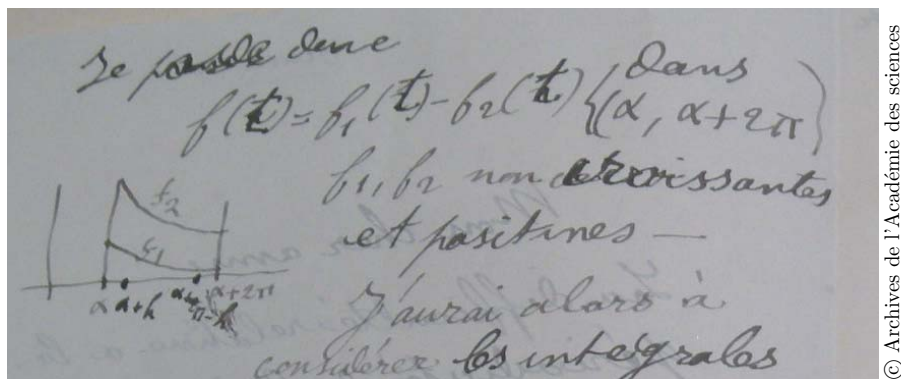 Je pose donc
f(t) = f₁(t) − f₂(t) { dans (α, α+2π)
f₁, f₂ non croissantes
et positives —
J'aurai alors à
considérer les intégrales
f₂
f₁
α α+h α+2π−h α+2π
© Archives de l'Académie des sciences